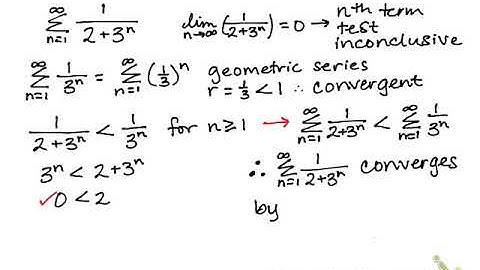 ∞ ∑ n=1 1/(2+3ⁿ) lim n→∞ (1/(2+3ⁿ)) = 0 → nth term test inconclusive
∞ ∑ n=1 1/3ⁿ = ∞ ∑ n=1 (1/3)ⁿ geometric series r = 1/3 < 1 ∴ convergent
1/(2+3ⁿ) < 1/3ⁿ for n ≥ 1 → ∞ ∑ n=1 1/(2+3ⁿ) < ∞ ∑ n=1 1/3ⁿ
3ⁿ < 2+3ⁿ
✓ 0 < 2
∴ ∞ ∑ n=1 1/(2+3ⁿ) converges
by